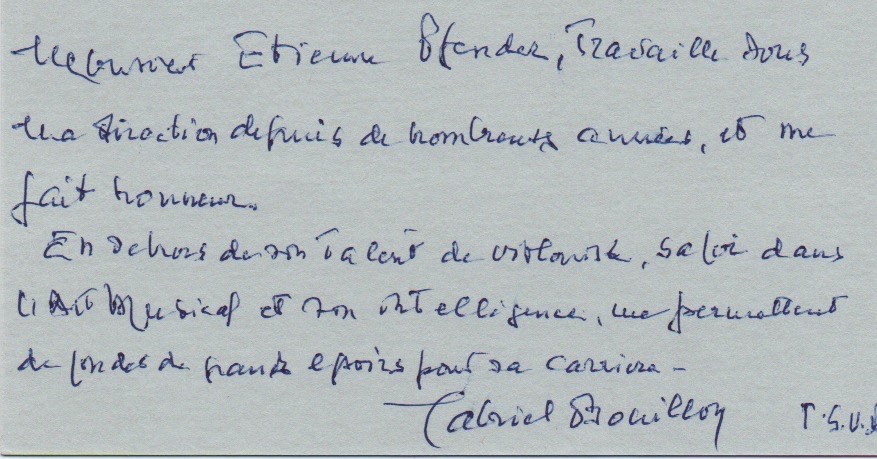 Monsieur Etienne Pfender, Travaille sous
ma direction depuis de nombreuses années, et me
fait honneur.
En dehors de son talent de violoniste, sa foi dans
l'Art Musical et son intelligence, me permettent
de fonder de grands espoirs pour sa carrière -
Gabriel Bouillon T.S.V.P